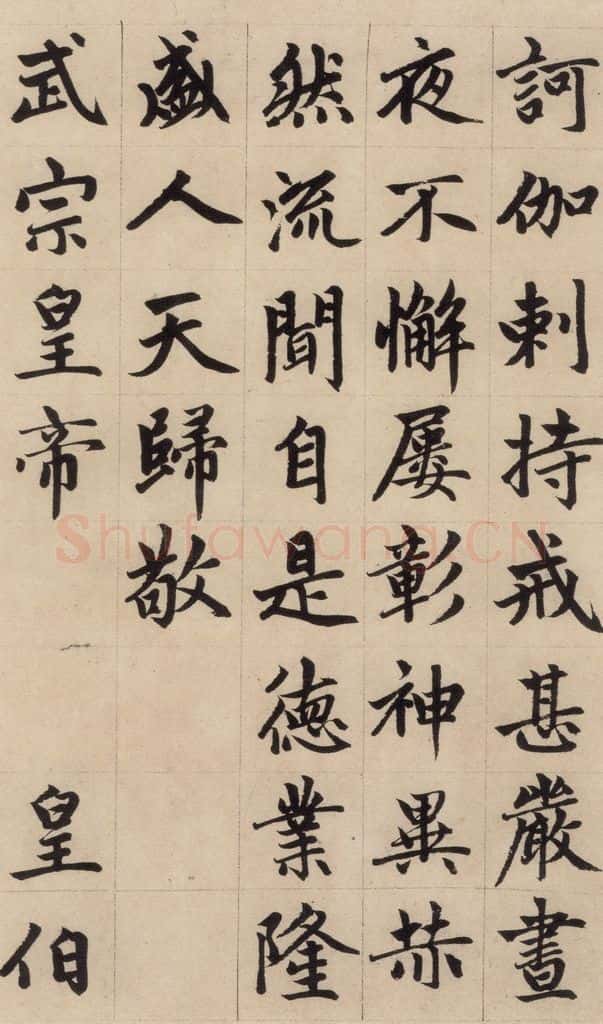 訶伽剌持戒甚嚴晝
夜不懈屢彰神異赫
然流聞自是德業隆
盛人天歸敬
武宗皇帝 皇伯
Shufawang.CN